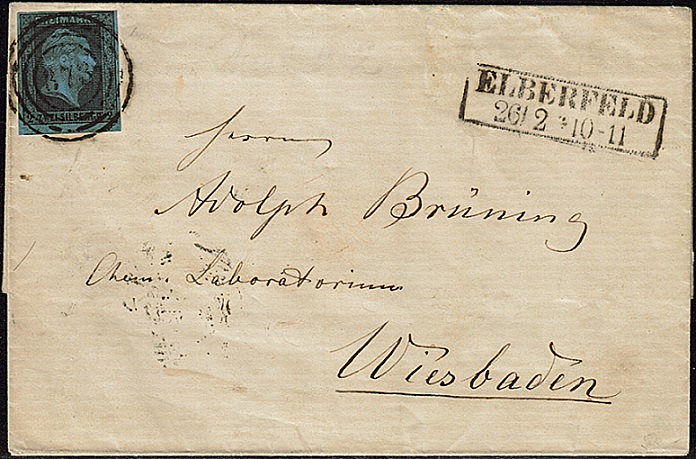 FREIMARKE
2 ZWEI SILBERGR. 2
ELBERFELD
26/2 * 10-11
Herrn
Adolph Brüning
Chem. Laboratorium
Wiesbaden